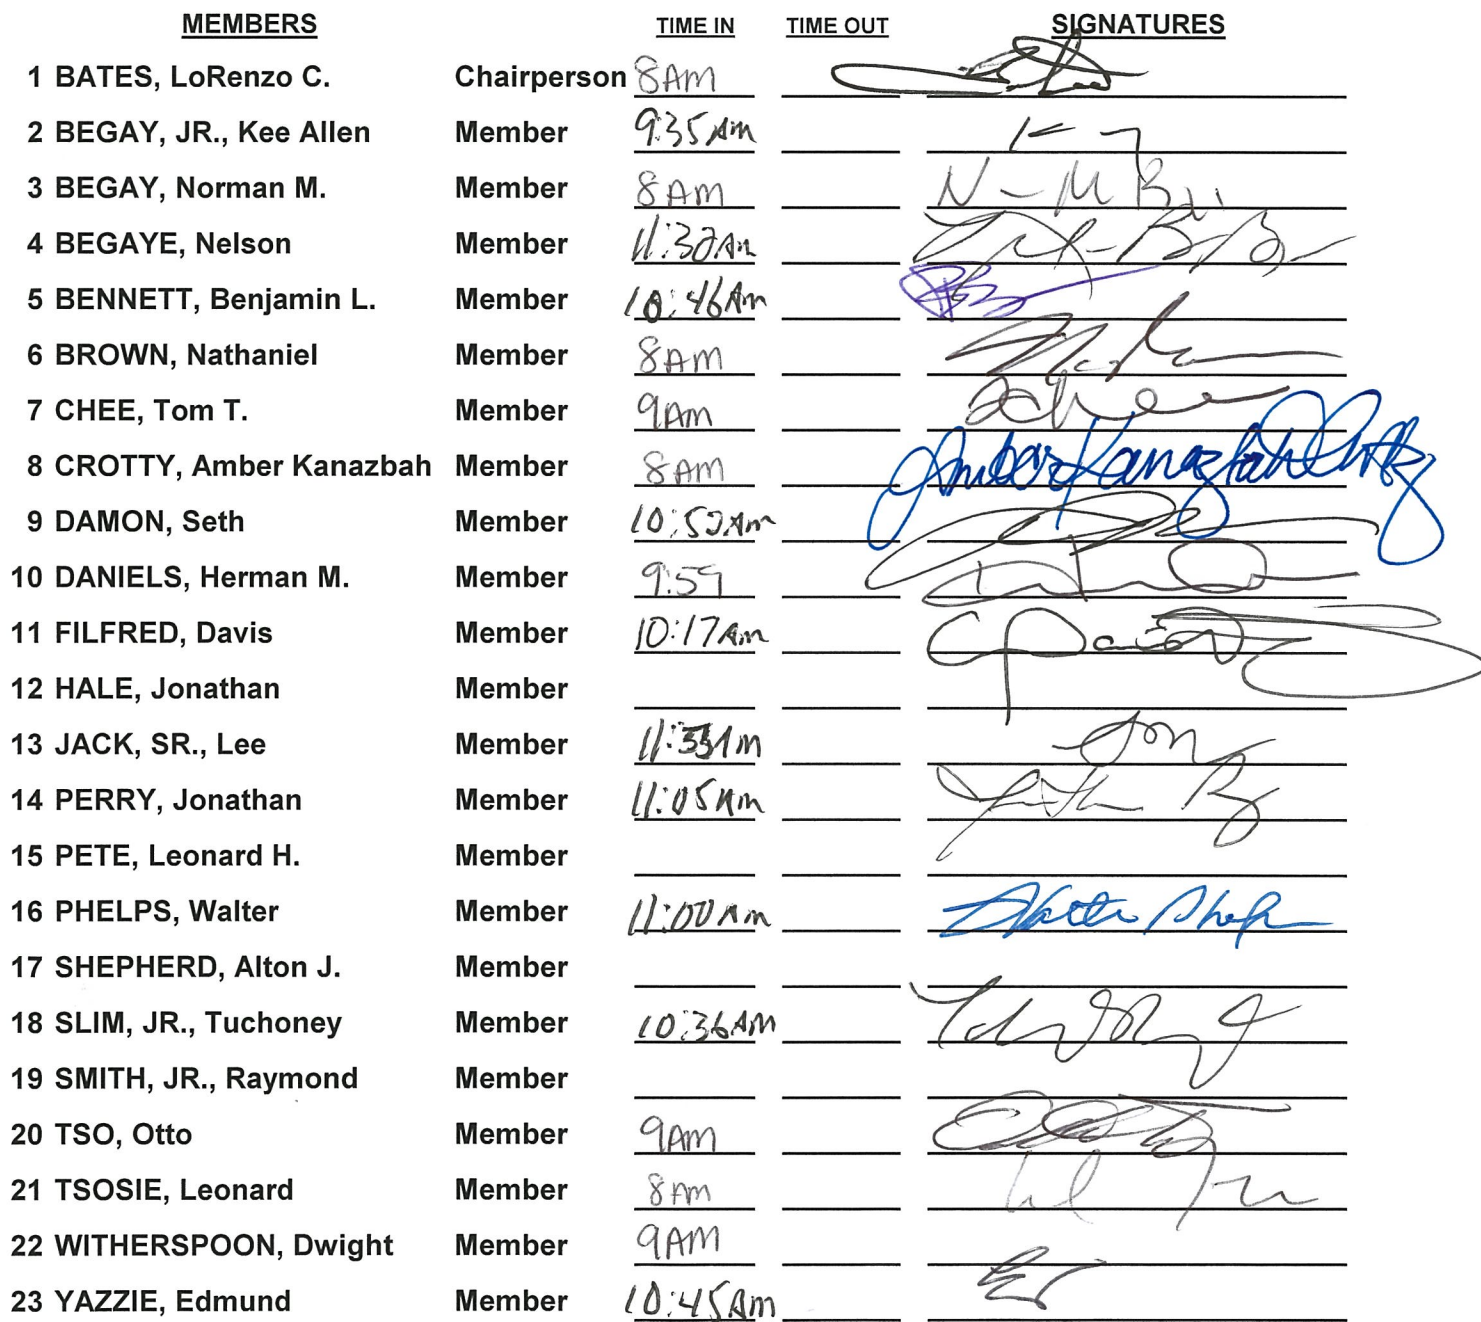 MEMBERS TIME IN TIME OUT SIGNATURES
1 BATES, LoRenzo C. Chairperson 8AM
2 BEGAY, JR., Kee Allen Member 9:35 AM
3 BEGAY, Norman M. Member 8AM
4 BEGAYE, Nelson Member
5 BENNETT, Benjamin L. Member 10:46 AM
6 BROWN, Nathaniel Member 8AM
7 CHEE, Tom T. Member 9AM
8 CROTTY, Amber Kanazbah Member 8AM Amber Kanazbah Crotty
9 DAMON, Seth Member 10:52 AM
10 DANIELS, Herman M. Member 9:59
11 FILFRED, Davis Member 10:17 AM
12 HALE, Jonathan Member
13 JACK, SR., Lee Member
14 PERRY, Jonathan Member 11:05 AM
15 PETE, Leonard H. Member
16 PHELPS, Walter Member 11:00 AM
17 SHEPHERD, Alton J. Member
18 SLIM, JR., Tuchoney Member 10:36 AM
19 SMITH, JR., Raymond Member
20 TSO, Otto Member 9AM
21 TSOSIE, Leonard Member 8AM
22 WITHERSPOON, Dwight Member 9AM
23 YAZZIE, Edmund Member 10:45 AM